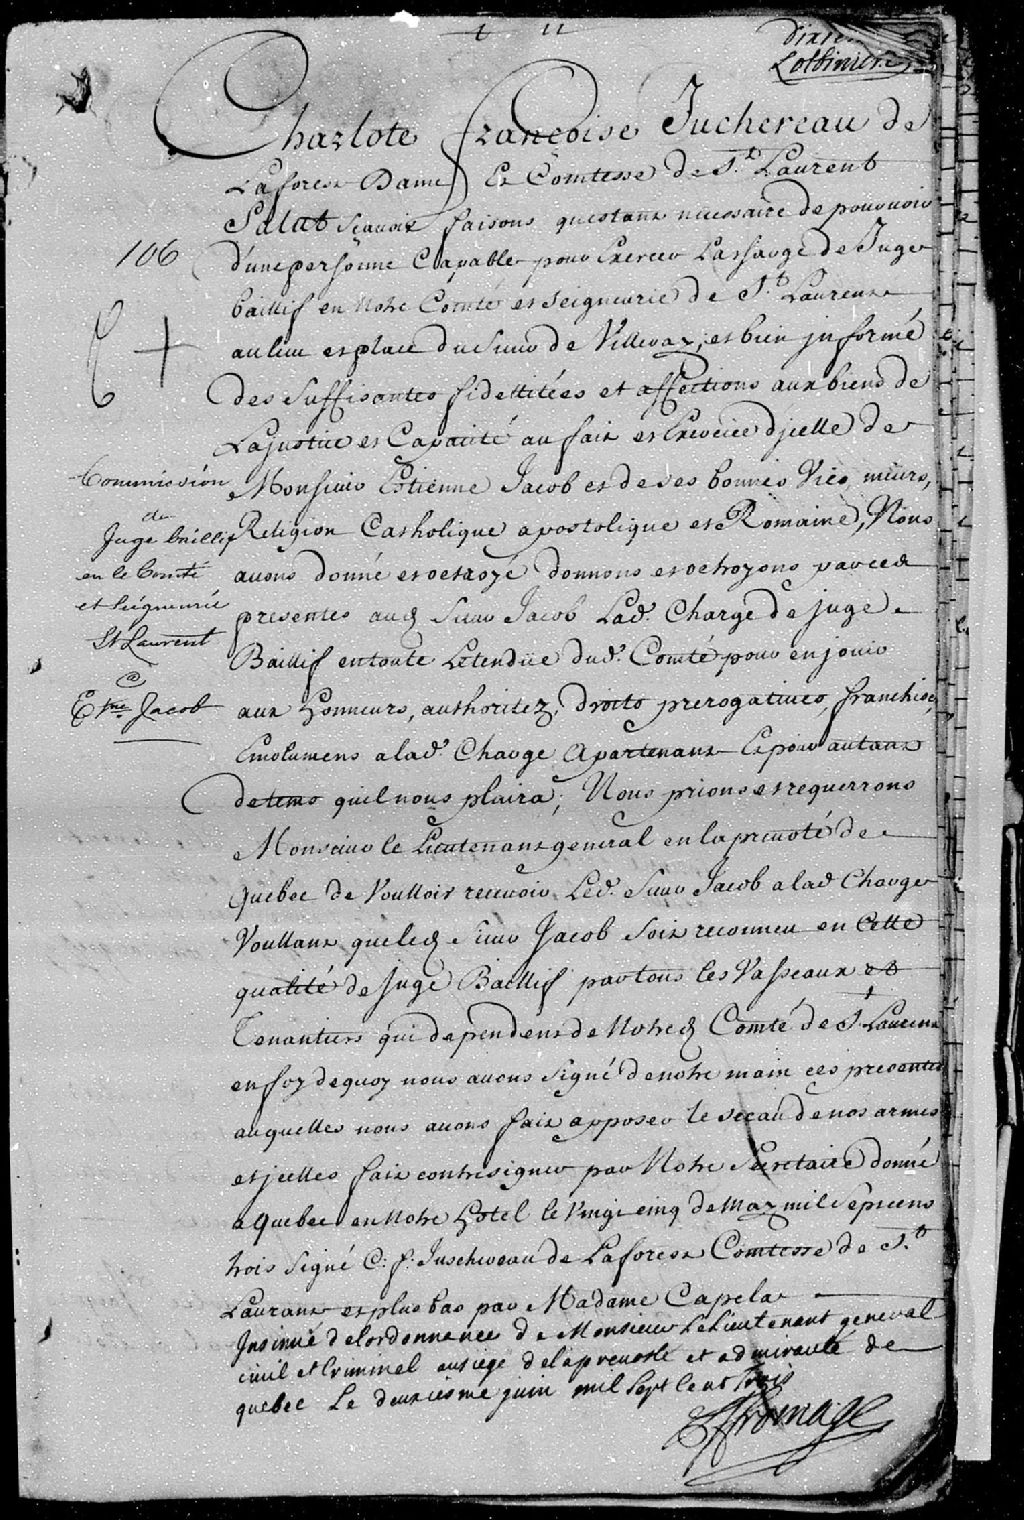 Lotbiniere
Charlote françoise Juchereau de
Laforest Dame Et Comtesse de St. Laurent
Salut scavoir faisons questant necessaire de pourvoir
106
d'une personne Capable pour Exercer La charge de Juge
baillif en Notre Comté et seigneurie de St. Laurent
au lieu et place du Sieur de Villeray, et bien jnformé
des suffisantes fidellitées et affections aux biens de
La justice et Capacité au fait et Exercice d'jcelle de
Monsieur Estienne Jacob et de ses bonnes Vies, meurs,
Religion Catholique apostolique et Romaine, Nous
avons donné et octroyé donnons et octroyons par ces
presentes aud Sieur Jacob Lad. Charge de juge
Baillif en toute Letendüe dud. Comté pour en jouir
aux honneurs, authoritez, droits prerogatives, franchises
Emolumens a lad. Charge apartenant Et pour autant
de tems quil nous plaira; Nous prions et requerrons
Monsieur le Lieutenant general en la prevoté de
Quebec de Vouloir recevoir Led. Sieur Jacob a lad Charge
Voullant que led Sieur Jacob soit reconneu en Cette
qualité de juge Baillif par tous les Vasseaux et
Tenantiers qui dependent de Notred Comté de St Laurent
en foy de quoy nous avons signé de notre main ces presentes
auquelles nous avons fait apposer le seceau de nos armes
et jcelles fait contresigner par Notre Secretaire donné
a Quebec en Notre hotel le Vingt cinq de may mil sept cens
trois signé C: f: Juschereau de Laforest Comtesse de St.
Laurant et plus bas par Madame Capela
Insinué de lordonnence de Monsieur Le Lieutenant general
civil et Criminel au siege de la prevosté et admirauté de
quebec Le deuxiesme juin mil sept cent trois
ffromage
Commission
de
Juge baillif
en le Comté
et seigneurie
St Laurent
@
Etne. Jacob